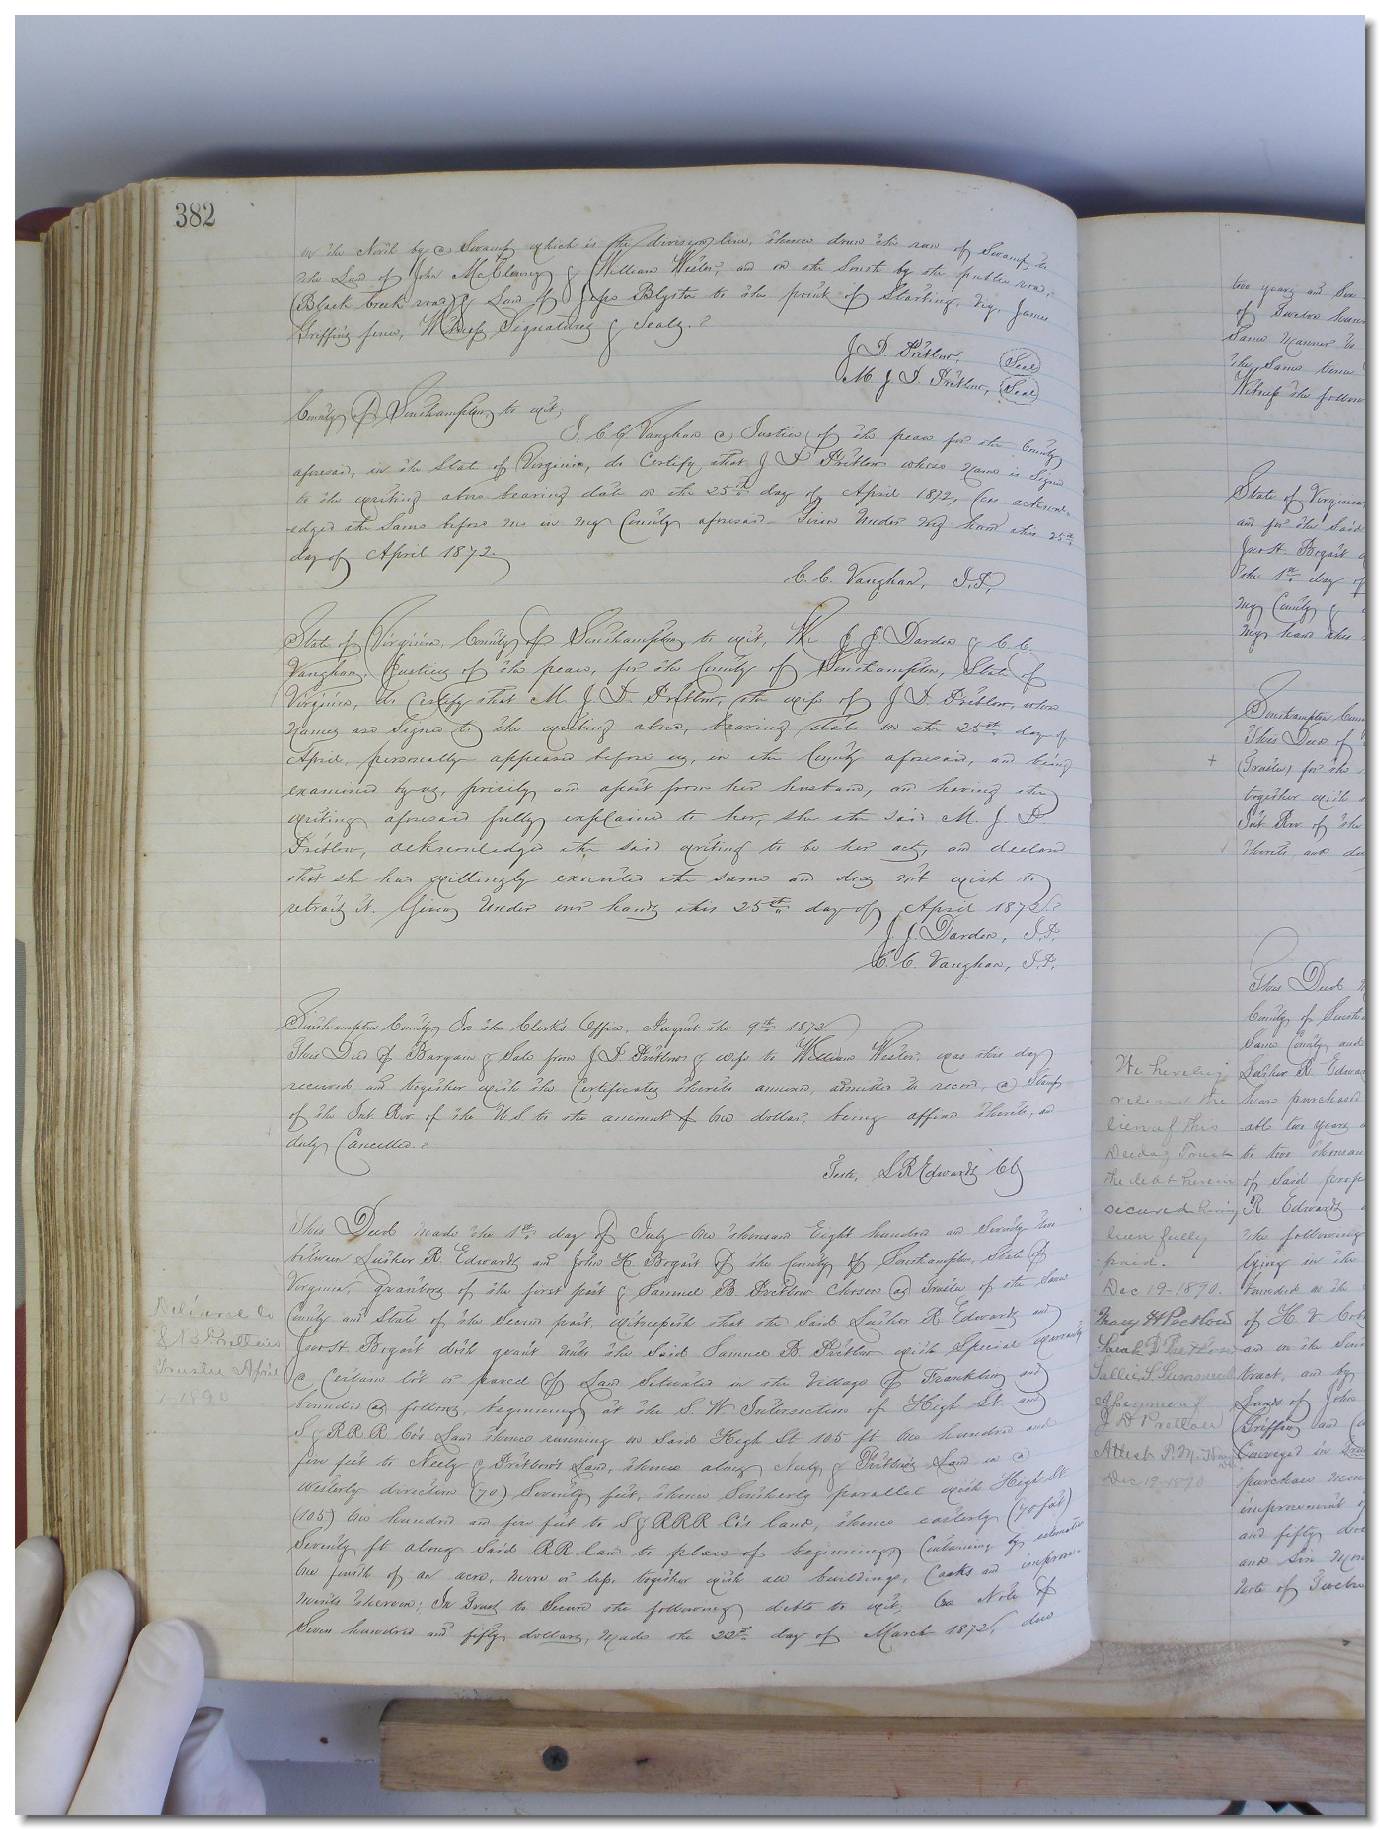 382
on the North by a Swamp which is the division line, thence down the run of Swamp to
the Land of John McClenny & William Wester, and on the South by the public road,
(Black Creek road) & Land of to the point of Starting, viz, James
Griffins fence, Witness Signatures & Seals.
J D Pretlow, (Seal)
M J D Pretlow, (Seal)
County of Southampton, to wit;
I. C. C. Vaughan a Justice of the peace for the County
aforesaid, in the State of Virginia, do Certify that J D Pretlow whose name is signed
to the writing above bearing date on the 25th day of April 1872, has acknowl-
edged the same before me in my County aforesaid. Given Under My hand this 25th
day of April 1872.
C. C. Vaughan, J.P.
State of Virginia, County of Southampton to wit, We J. J. Darden & C. C.
Vaughan, Justices of the peace, for the County of Southampton, State of
Virginia, do Certify that M. J. D. Pretlow, the wife of J D. Pretlow, whose
names are signed to the writing above, bearing date on the 25th day of
April, personally appeared before us, in the County aforesaid, and being
examined by us, privily and apart from her husband, and having the
writing aforesaid fully explained to her, she the said M. J. D.
Pretlow, acknowledged the said writing to be her act, and declared
that she had willingly executed the same and does not wish to
retract it. Given Under our hands this 25th day of April 1872.
J. J. Darden, J.P.
C. C. Vaughan, J.P.
Southampton County, In the Clerk's Office, August the 9th 1872
This Deed of Bargain & Sale from J D Pretlow & wife to William Wester, was this day
received and together with the Certificates thereto annexed, admitted to record, a Stamp
of the Int. Rev. of the U.S. to the amount of One dollar, being affixed thereto, and
duly Cancelled.
Teste, L R Edwards CC
This Deed made the 1st day of July One thousand Eight hundred and Seventy two
between Luther R. Edwards and John H Bogart of the County of Southampton, State of
Virginia, grantors of the first part & Samuel B. Pretlow chosen as Trustee of the Same
County and State of the second part, witnesseth that the said Luther R. Edwards and
Jno. H. Bogart doth grant unto the Said Samuel B. Pretlow with Special warranty
a Certain lot or parcel of Land Situated in the Village of Franklin and
bounded as follows, beginning at the S. W. Intersection of High St. and
S & R R R Co's Land thence running on Said High St 105 ft One hundred and
five feet to Neely & Pretlow's Land, thence along Neely & Pretlow's Land in a
Westerly direction (70) Seventy feet, thence Southerly parallel with High St.
(105) One hundred and five feet to S & R R R Co's land, thence easterly (70 feet)
Seventy ft along Said R R land to place of beginning, Containing by estimation
One of an acre, more or less, together with all buildings, and improve-
ments thereon; In Trust to Secure the following debts to wit; One Note of
Seven hundred and fifty dollars, made the 22d day of March 1872, due
Delivered to
S B Pretlow
Trustee April
1890
two years and
of Twelve
Same manner
the Same
Witness the
State of Virginia
and for the Said
Jno H. Bogart
the 1st day of
my County &
my hand this
Southampton
This Deed of
+
(Trustee) for the
together with
Int Rev of the
thereto and
This Deed
County of
Same County and
Luther R Edwards
have purchased
able two years
to two thousand
of Said
R Edwards
the following
lying in the
bounded on the
of H &
and on the
tract, and by
Lands of John
Griffin and
Conveyed in
purchase
improvement
and fifty
and Six
Note of Twelve
We hereby
release the
lien of this
Deed of Trust
the debt herein
secured having
been fully
paid.
Dec 19-1890.
Mary H Pretlow
J D Pretlow
Attest
Dec 19-1890